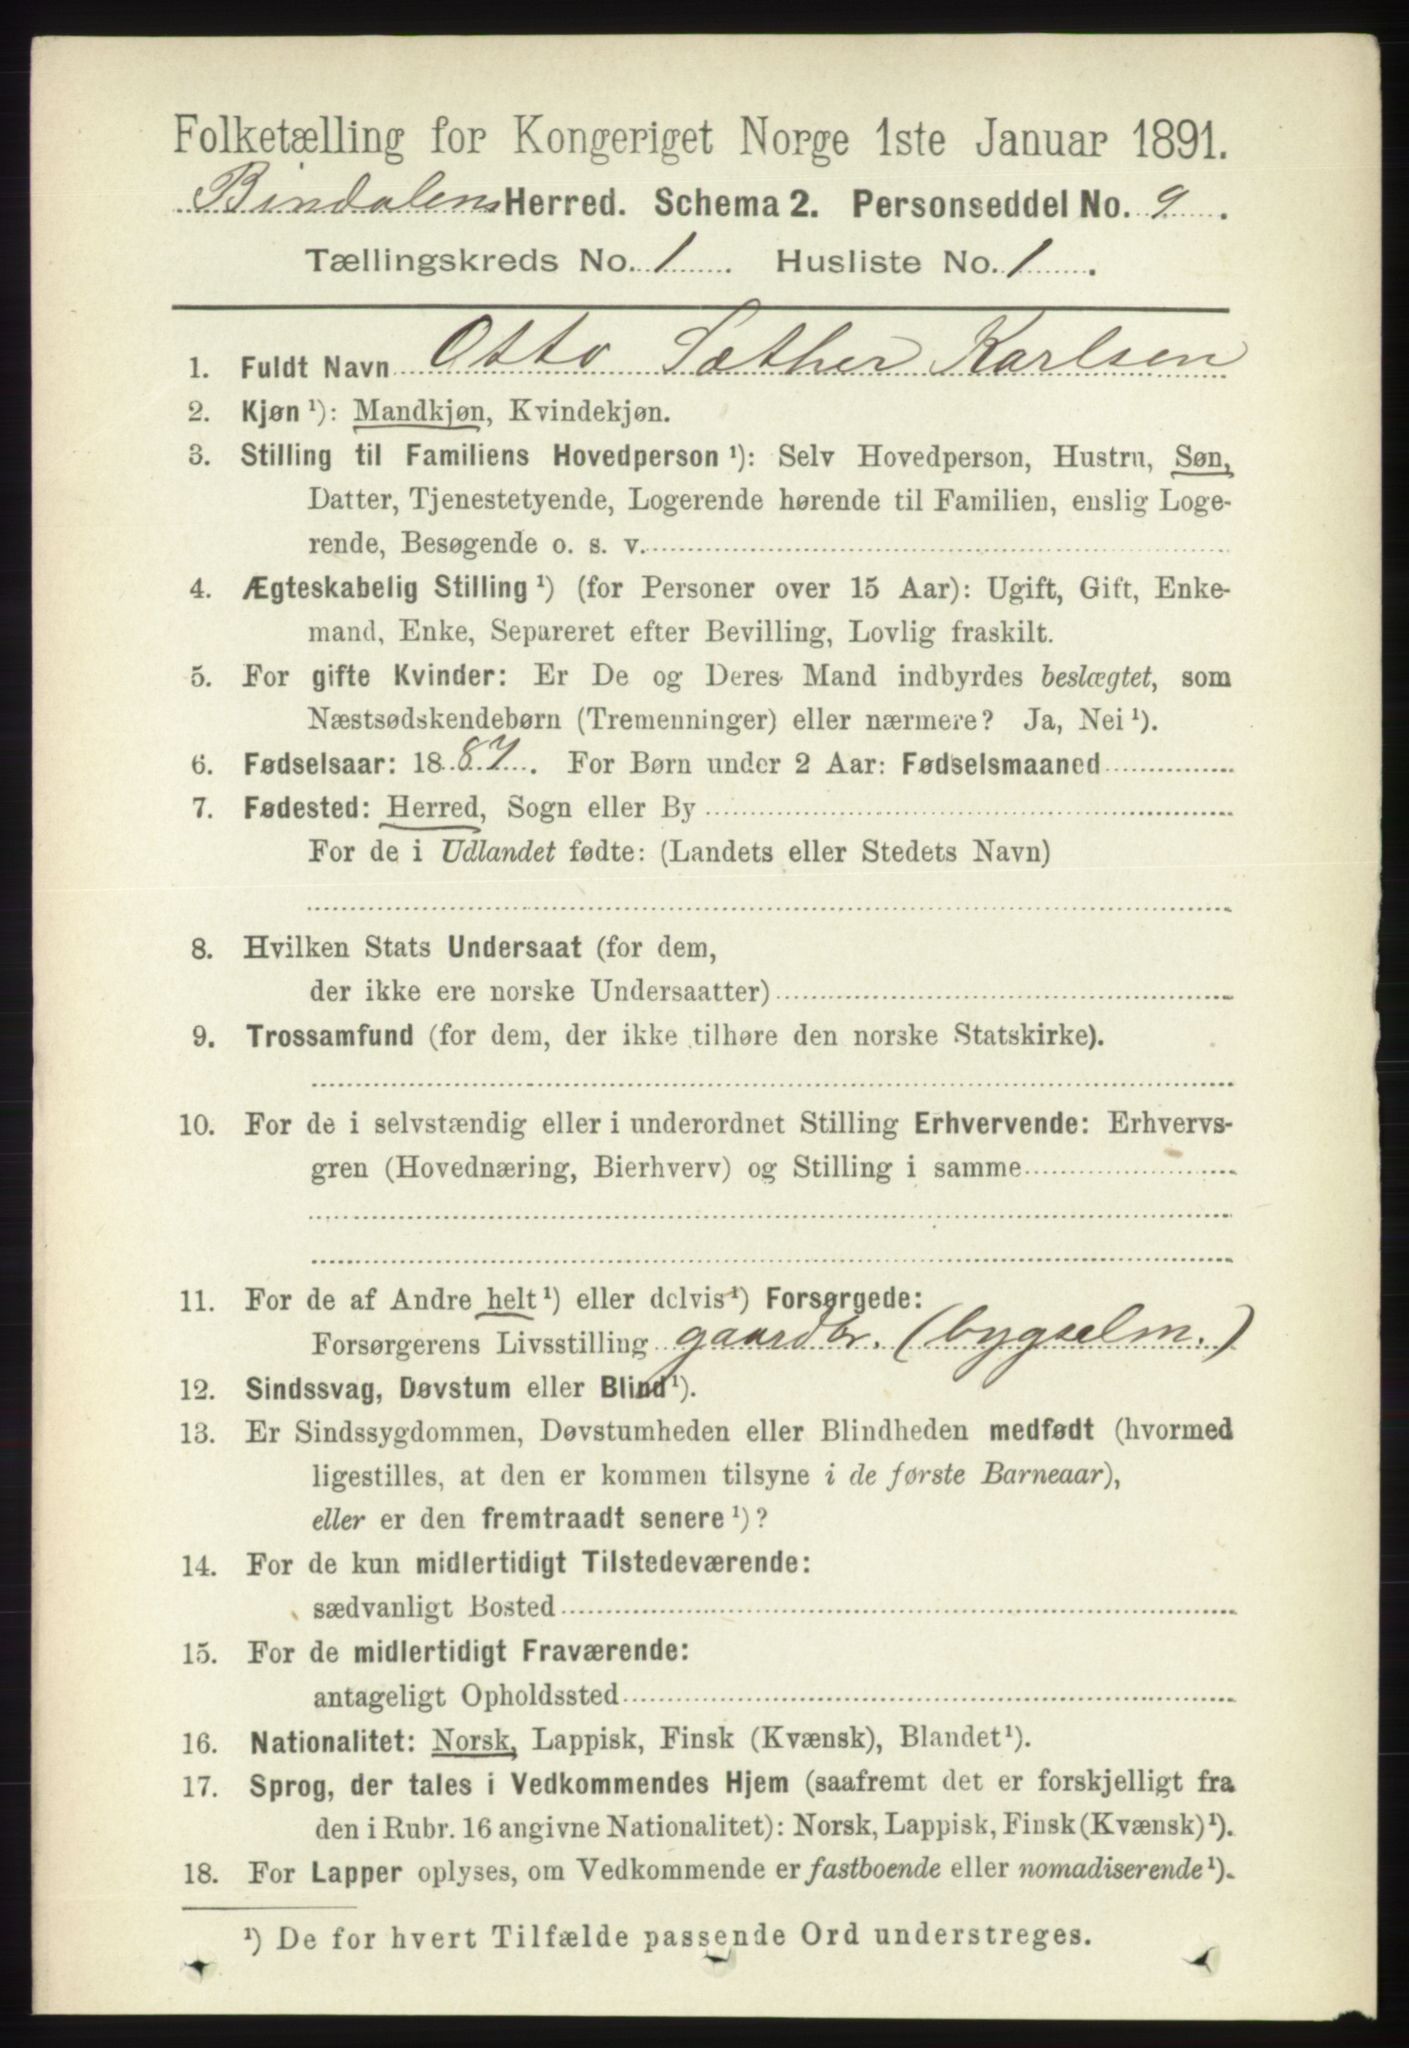 Folketælling for Kongeriget Norge 1ste Januar 1891.
Bindalens Herred. Schema 2. Personseddel No. 9.
Tællingskreds No. 1. Husliste No. 1.
1. Fuldt Navn Otto Sæther Karlsen
2. Kjøn ¹): Mandkjøn, Kvindekjøn.
3. Stilling til Familiens Hovedperson ¹): Selv Hovedperson, Hustru, Søn,
Datter, Tjenestetyende, Logerende hørende til Familien, enslig Loge-
rende, Besøgende o. s. v.
4. Ægteskabelig Stilling ¹) (for Personer over 15 Aar): Ugift, Gift, Enke-
mand, Enke, Separeret efter Bevilling, Lovlig fraskilt.
5. For gifte Kvinder: Er De og Deres Mand indbyrdes beslægtet, som
Næstsødskendebørn (Tremenninger) eller nærmere? Ja, Nei ¹).
6. Fødselsaar: 1887. For Børn under 2 Aar: Fødselsmaaned
7. Fødested: Herred, Sogn eller By
For de i Udlandet fødte: (Landets eller Stedets Navn)
8. Hvilken Stats Undersaat (for dem,
der ikke ere norske Undersaatter)
9. Trossamfund (for dem, der ikke tilhøre den norske Statskirke).
10. For de i selvstændig eller i underordnet Stilling Erhvervende: Erhvervs-
gren (Hovednæring, Bierhverv) og Stilling i samme
11. For de af Andre helt ¹) eller delvis ¹) Forsørgede:
Forsørgerens Livsstilling gaardbr. (bygselm.)
12. Sindssvag, Døvstum eller Blind ¹).
13. Er Sindssygdommen, Døvstumheden eller Blindheden medfødt (hvormed
ligestilles, at den er kommen tilsyne i de første Barneaar),
eller er den fremtraadt senere ¹)?
14. For de kun midlertidigt Tilstedeværende:
sædvanligt Bosted
15. For de midlertidigt Fraværende:
antageligt Opholdssted
16. Nationalitet: Norsk, Lappisk, Finsk (Kvænsk), Blandet ¹).
17. Sprog, der tales i Vedkommendes Hjem (saafremt det er forskjelligt fra
den i Rubr. 16 angivne Nationalitet): Norsk, Lappisk, Finsk (Kvænsk) ¹).
18. For Lapper oplyses, om Vedkommende er fastboende eller nomadiserende ¹).
¹) De for hvert Tilfælde passende Ord understreges.